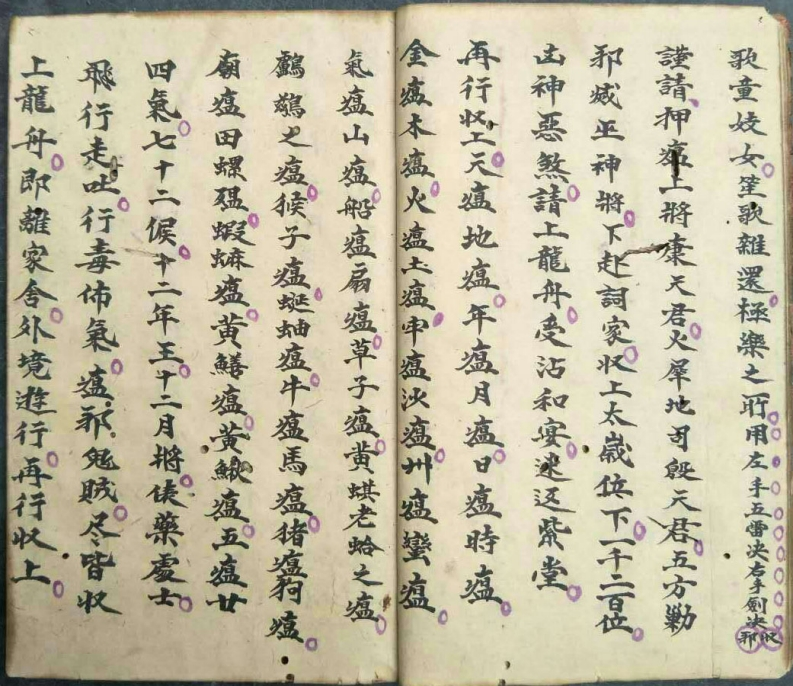 歌童妓女笙歌雜還極樂之所用左手五雷决右手劍决收邪
謹請押瘟上將康天君火犀地司殷天君五方勦
邪滅巫神將下赴詞家收上太歲位下一千二百位
凶神惡煞請上龍舟受沾和宴迷迋紫堂
再行收上天瘟地瘟年瘟月瘟日瘟時瘟
金瘟木瘟火瘟土瘟申瘟沙瘟州瘟蠻瘟
氣瘟山瘟船瘟扇瘟草子瘟黄蜞老蛤之瘟
鸕鷀之瘟猴子瘟蜒蚰瘟牛瘟馬瘟猪瘟狗瘟
廟瘟田螺瘟蝦蟆瘟黄鱔瘟黄鰍瘟五瘟廿
四氣七十二候十二年王十二月將俵藥處士
飛行走吐行毒佈氣瘟邪鬼賊尽皆收
上龍舟即離家舍外境遊行再行收上